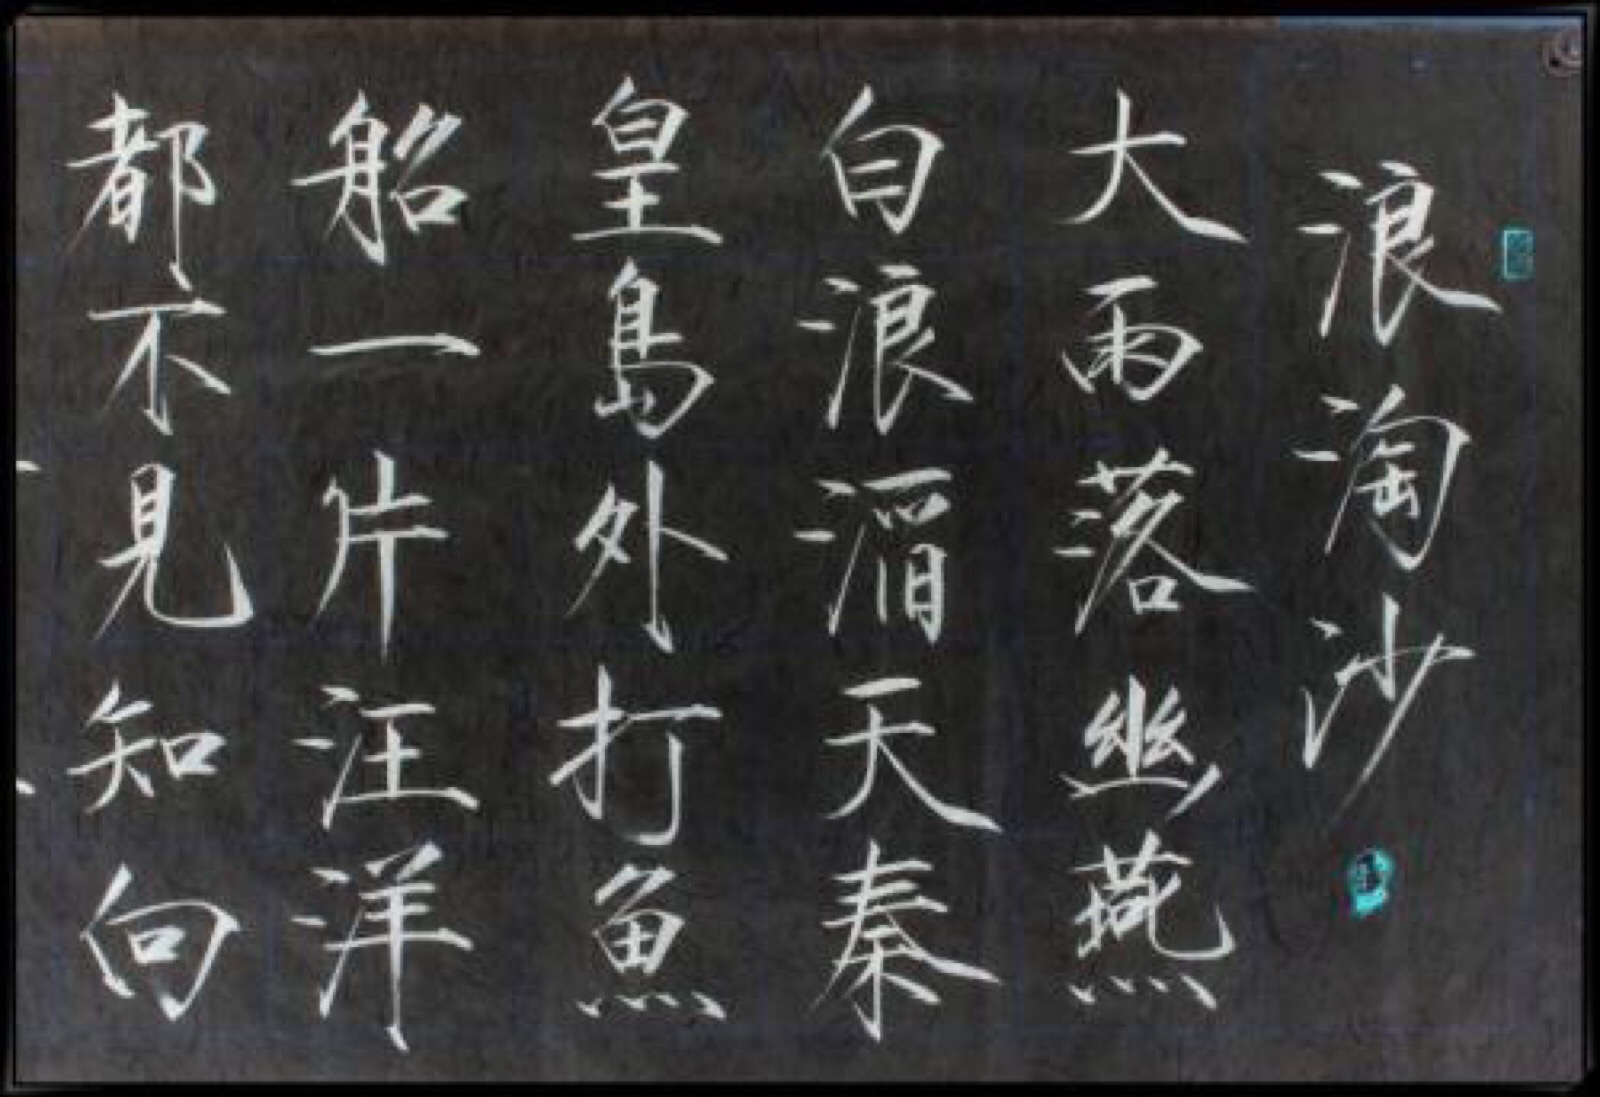 浪淘沙
大雨落幽燕
白浪滔天秦
皇島外打魚
船一片汪洋
都不見知向